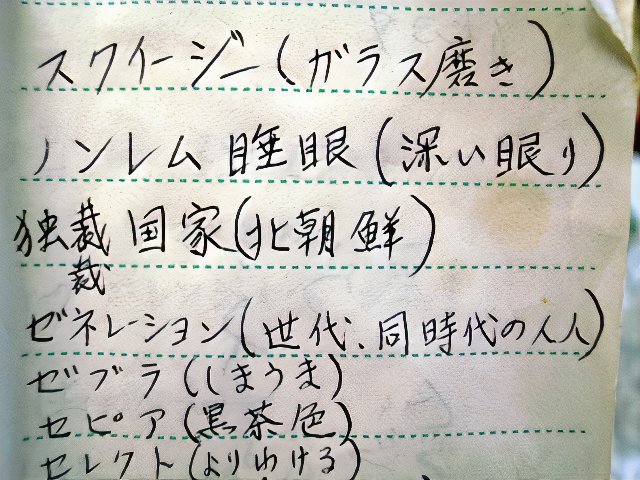 スクイージー(ガラス磨き)
ノンレム睡眠(深い眠り)
独裁国家(北朝鮮)
裁
ゼネレーション(世代、同時代の人人)
ゼブラ(しまうま)
セピア(黒茶色)
セレクト(よりわける)